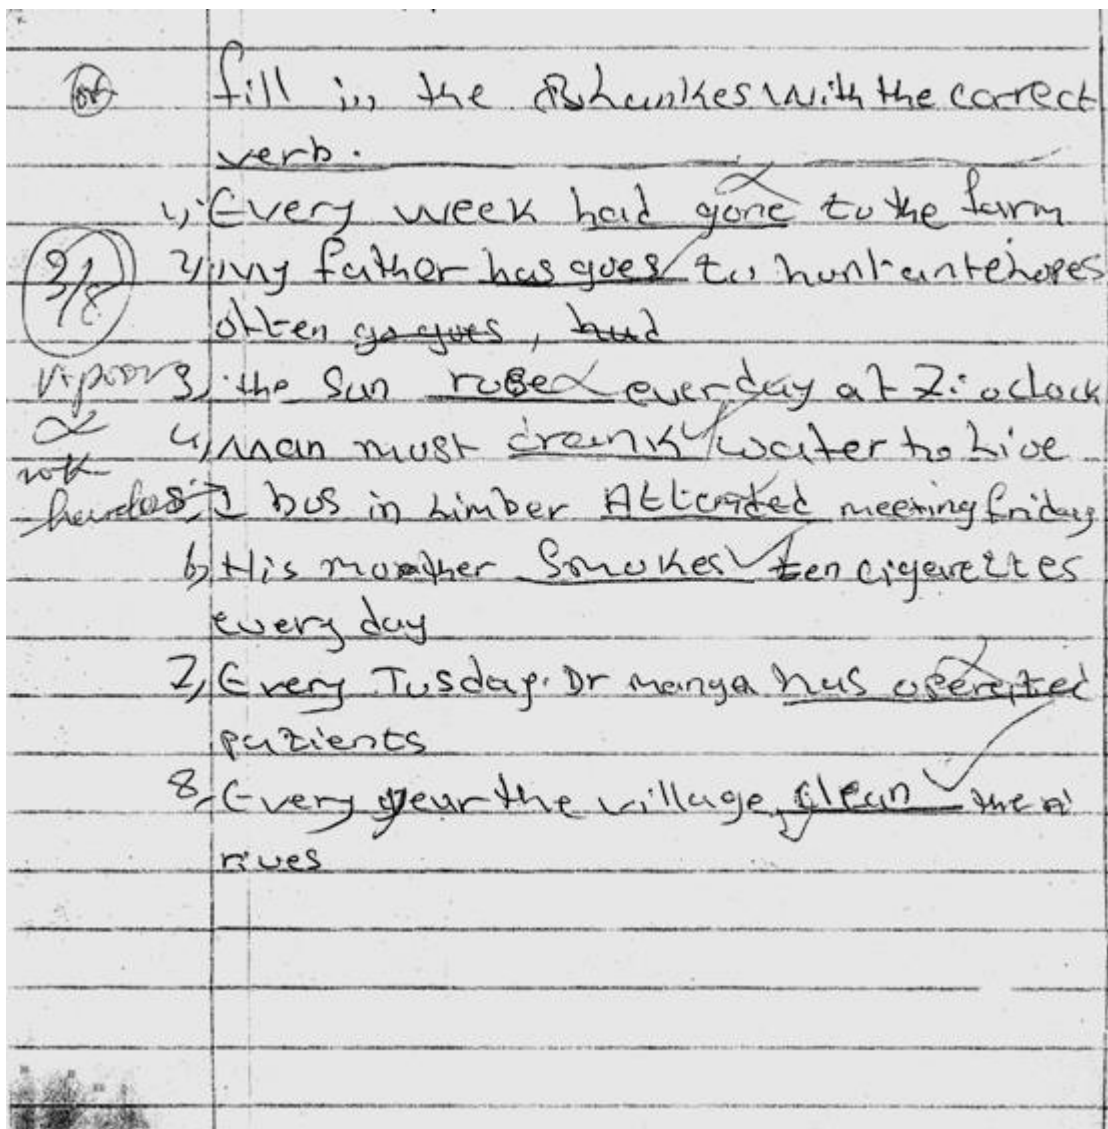 fill in the Bhankes with the correct
verb.
1, Every week had gone to the farm
3/8 2, my father has goes to hunt antehopes
often go goes, had
v. poor 3, the Sun rose everday at 7: oclock
4, man must drank water to Live
work
harder 5, I bus in Limber Attended meeting friday
6, His mother Smokes ten cigerettes
every day
7, Every Tusday. Dr manga has operated
patients
8, Every year the village, clean the
rives